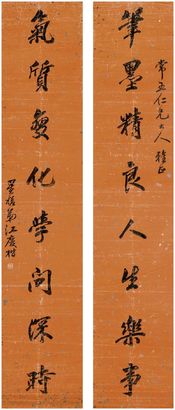 筆墨精良人生樂事
常五仁兄大人雅正
氣質變化學問深時
江廣柑